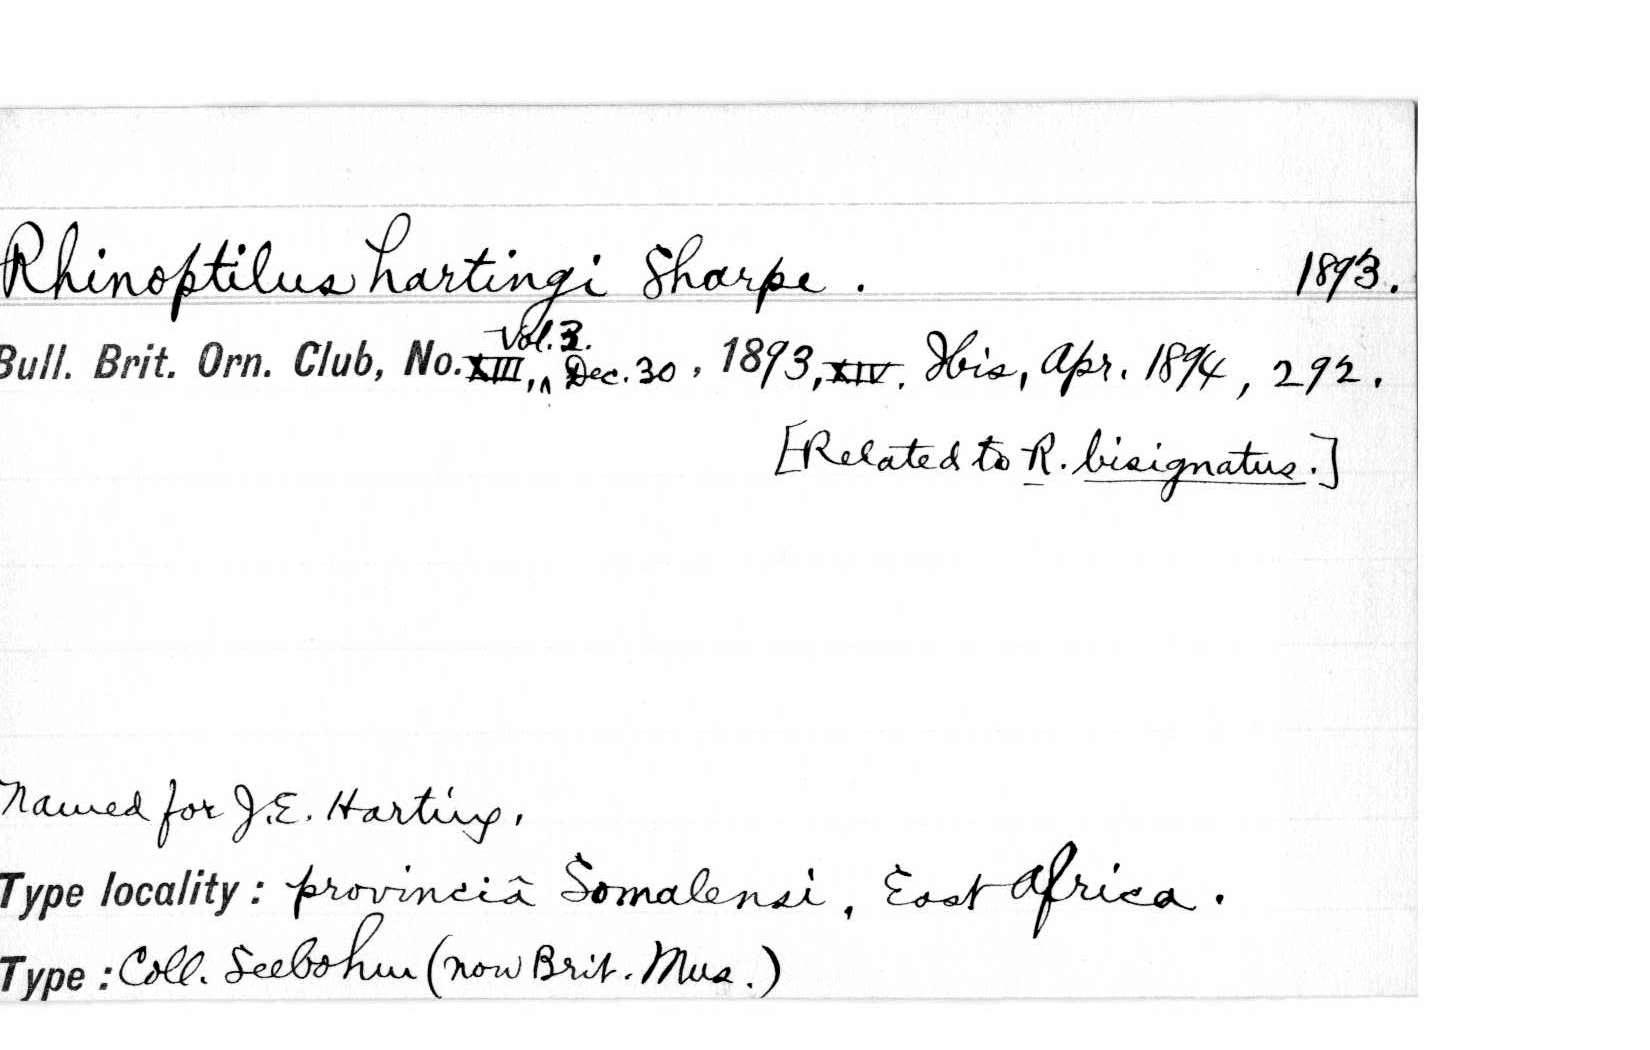 Rhinoptilus hartingi Sharpe. 1893.
Vol. 3.
Bull. Brit. Orn. Club, No. XIII, ^ Dec. 30, 1893, XIV. Ibis, Apr. 1894, 292.
[Related to R. bisignatus.]
Named for J.E. Harting.
Type locality: provinciâ Somalensi, East Africa.
Type: Coll. Seebohm (now Brit. Mus.)